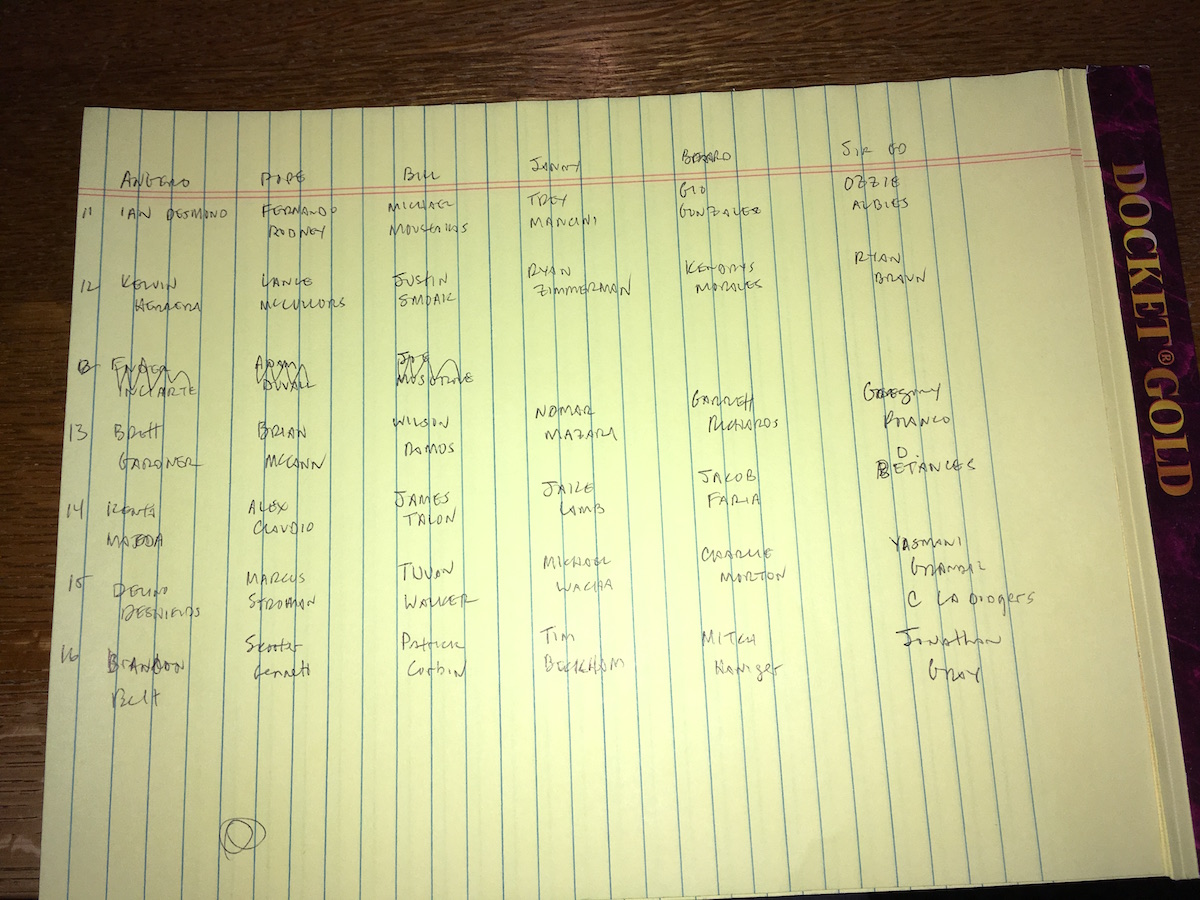 ANGERO POPE BILL JONNY BEARD SIR ED
11 IAN DESMOND FERNANDO MICHAEL TREY GIO OZZIE
RODNEY MOUSTAKAS MANCINI GONZALEZ ALBIES
12 KELVIN LANCE JUSTIN RYAN KENDRYS RYAN
HERRERA MCCULLORS SMOAK ZIMMERMAN MORALES BRAUN
13 ENDER ADAM JOE
INCIARTE DUVALL MUSGROVE
13 BRETT BRIAN WILSON NOMAR GARRETT GREGORY
GARDNER MCCANN RAMOS MAZARA RICHARDS POLANCO
14 KENTA ALEX JAMES JAKE JACOB D. BETANCES
MAEDA CLAUDIO TALON LAMB FARIA
15 DELINO MARCUS TIJUAN MICHAEL CHARLIE YASMANI
DESHIELDS STROMAN WALKER WACHA MORTON GRANDAL
C LA Dodgers
16 BRANDON Skooter Patrick TIM MITCH Jonathan
Belt Gennett Corbin BECKHAM Haniger Gray
DOCKET® GOLD